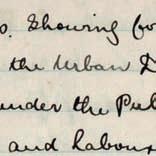 s. Showing fo
the Urban D
under the Pub
and Labour